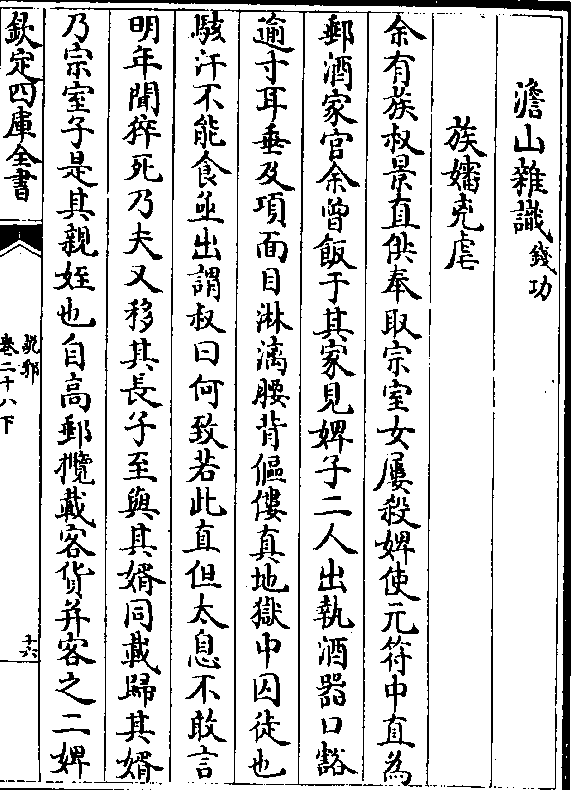 澹山雜識錢功
族嬸兇虐
余有族叔景直供奉取宗室女屢殺婢使元符中直為
郵酒家官余曾飯于其家見婢子二人出執酒器口豁
逾寸耳垂及項面目淋漓腰背傴僂真地獄中囚徒也
駭汗不能食並出謂叔曰何致若此直但太息不敢言
明年聞猝死乃夫又移其長子至與其婿同載歸其婿
乃宗室子是其親姪也自高郵攬載客貨并客之二婢
欽定四庫全書
說郛
卷二十八下
十六